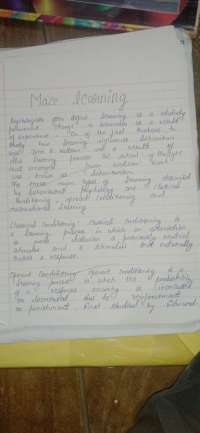 Maze learning
Psychologists often define learning as a relatively
permanent change in behaviour as a result
of experience. One of the first thinkers to
study how learning influences behaviour
was John B Watson and a result of
this learning process the school of thought
that emerged from Watson work
was known as behaviourism.
The three major types of learning described
by behavioural Psychology are classical
conditioning, operant conditioning and
observational learning
Classical Conditioning: Classical conditioning is
a learning process in which an association
is made between a previously neutral
stimulus and a stimulus that naturally
evokes a response.
Operant Conditioning: Operant conditioning is a
learning process in which the probability
of a response occuring is increased
or decreased due to reinforcement
or punishment. First studied by Edward